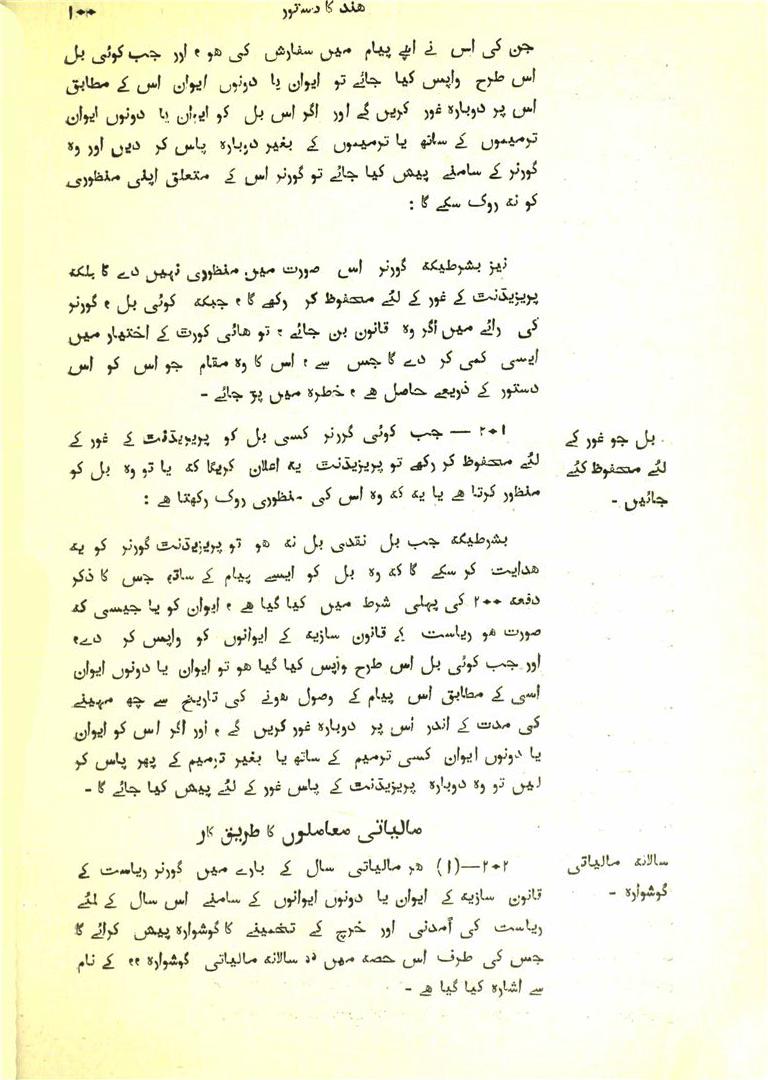 ۱۰۰
ھند کا دستور
جن کی اس نے اپنے پیام میں سفارش کی ھو ؛ اور جب کوئی بل
اس طرح واپس کیا جائے تو ایوان یا دونوں ایوان اس کے مطابق
اس پر دوبارہ غور کریں گے اور اگر اس بل کو ایوان یا دونوں ایوان
ترمیموں کے ساتھ یا ترمیموں کے بغیر دوبارہ پاس کر دیں اور وہ
گورنر کے سامنے پیش کیا جائے تو گورنر اس کے متعلق اپنی منظوری
کو نہ روک سکے گا :
نیز بشرطیکہ گورنر اس صورت میں منظوری نہیں دے گا بلکہ
پریزیڈنت کے غور کے لئے محفوظ کر رکھے گا ؛ جبکہ کوئی بل ؛ گورنر
کی رائے میں اگر وہ قانون بن جائے ؛ تو ھائی کورت کے اختیار میں
ایسی کمی کر دے گا جس سے ؛ اس کا وہ مقام جو اس کو اس
دستور کے ذریعے حاصل ھے ؛ خطرہ میں پڑ جائے -
بل جو غور کے
لئے محفوظ کئے
جائیں -
۲۰۱ — جب کوئی گررنر کسی بل کو پریزیڈنت کے غور کے
لئے محفوظ کر رکھے تو پریزیڈنت یہ اعلان کریگا کہ یا تو وہ بل کو
منظور کرتا ھے یا یہ کہ وہ اس کی منظوری روک رکھتا ھے :
بشرطیکہ جب بل نقدی بل نہ ھو تو پریزیڈنت گورنر کو یہ
ھدایت کر سکے گا کہ وہ بل کو ایسے پیام کے ساتھ جس کا ذکر
دفعہ ۲۰۰ کی پہلی شرط میں کیا گیا ھے ؛ ایوان کو یا جیسی کہ
صورت ھو ریاست کے قانون سازیہ کے ایوانوں کو واپس کر دے ؛
اور جب کوئی بل اس طرح واپس کیا گیا ھو تو ایوان یا دونوں ایوان
اسی کے مطابق اس پیام کے وصول ھونے کی تاریخ سے چھ مہینے
کی مدت کے اندر اس پر دوبارہ غور کریں گے ؛ اور اگر اس کو ایوان
یا دونوں ایوان کسی ترمیم کے ساتھ یا بغیر ترمیم کے پھر پاس کو
لیں تو وہ دوبارہ پریزیڈنت کے پاس غور کے لئے پیش کیا جائے گا -
مالیاتی معاملوں کا طریق کار
سالانہ مالیاتی
گوشوارہ -
۲۰۲—(۱) ھر مالیاتی سال کے بارے میں گورنر ریاست کے
قانون سازیہ کے ایوان یا دونوں ایوانوں کے سامنے اس سال کے لئے
ریاست کی آمدنی اور خرچ کے تخمینے کا گوشوارہ پیش کرائے گا
جس کی طرف اس حصہ میں ”سالانہ مالیاتی گوشوارہ“ کے نام
سے اشارہ کیا گیا ھے -